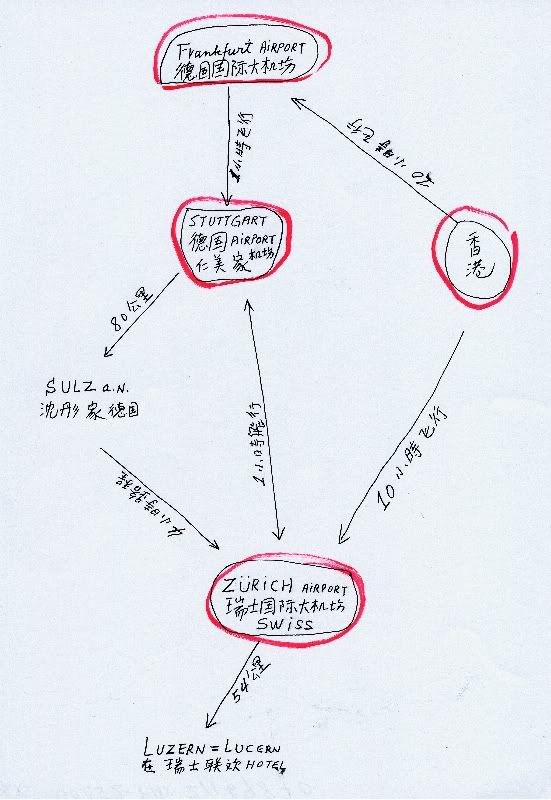 Frankfurt AIRPORT
德国国际大机场
1小時飞行
10小時飞行
STUTTGART
德国 AIRPORT
仁美家机场
香港
80公里
SULZ a.N.
沈彤家德国
1小時飛行
10小時飞行
小時路程
ZÜRICH AIRPORT
瑞士国际大机坊
SWiss
54公里
LUZERN = LUCERN
在瑞士联欢HOTEL